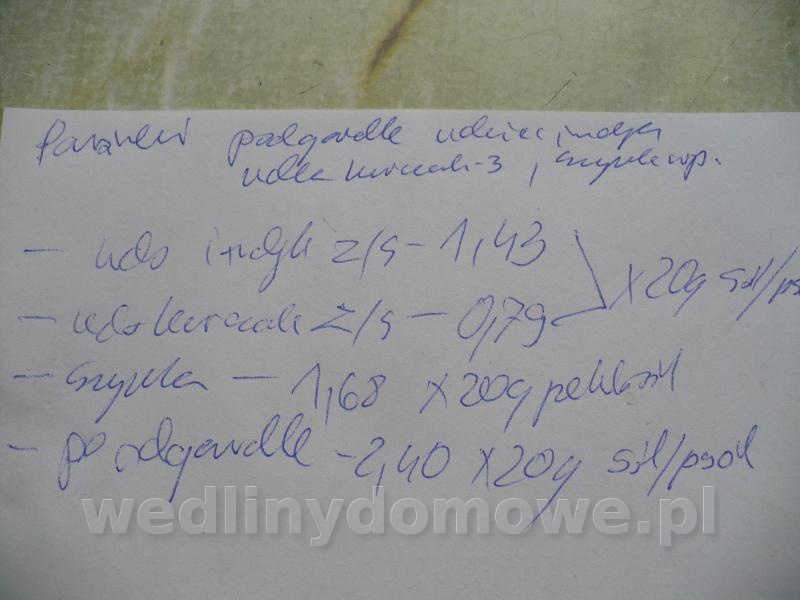 Parówki podgardle udziec indyk
udka kurczak-3, szynka wp.
— udo indyk z/s - 1,43
— udo kurczak z/s — 0,79 x 20g sól/
— szynka — 1,68 x 20g peklosól
— podgardle - 2,40 x 20g sól/psól
wedlinydomowe.pl